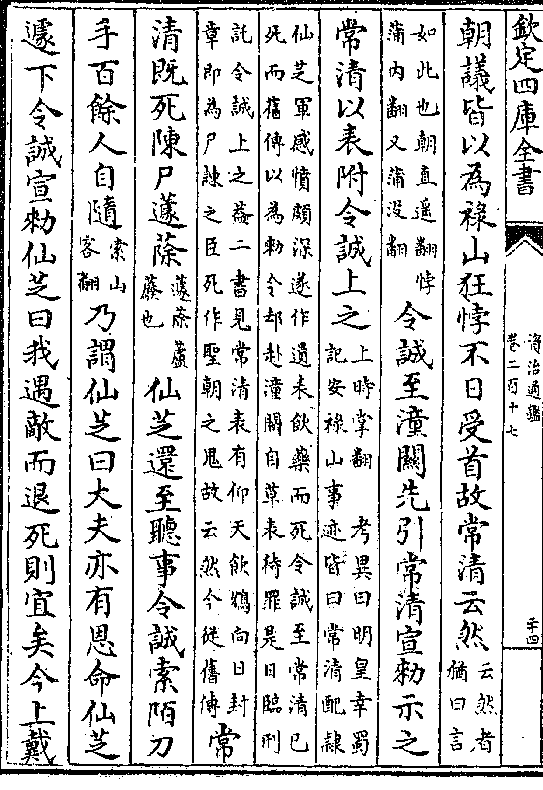 欽定四庫全書
資治通鑑
卷二百十七
朝議皆以為祿山狂悖不日受首故常清云然
云然者
猶曰言
如此也朝直遥翻悖
蒲内翻又蒲没翻
令誠至潼關先引常清宣敕示之
常清以表附令誠上之
上時掌翻 考異曰明皇幸蜀
記安祿山事迹皆曰常清配隸
仙芝軍感憤頗深遂作遺表飲藥而死令誠至常清已
死而舊傳以為敕令却赴潼關自草表待罪是日臨刑
託令誠上之葢二書見常清表有仰天飲鴆向日封
章即為尸諫之臣死作聖朝之鬼故云然今從舊傳
常
清既死陳尸蘧蒢
蘧蒢蘆
也
仙芝還至聽事令誠索陌刀
手百餘人自隨
索山
客翻
乃謂仙芝曰大夫亦有恩命仙芝
遽下令誠宣敕仙芝曰我遇敵而退死則宜矣今上戴